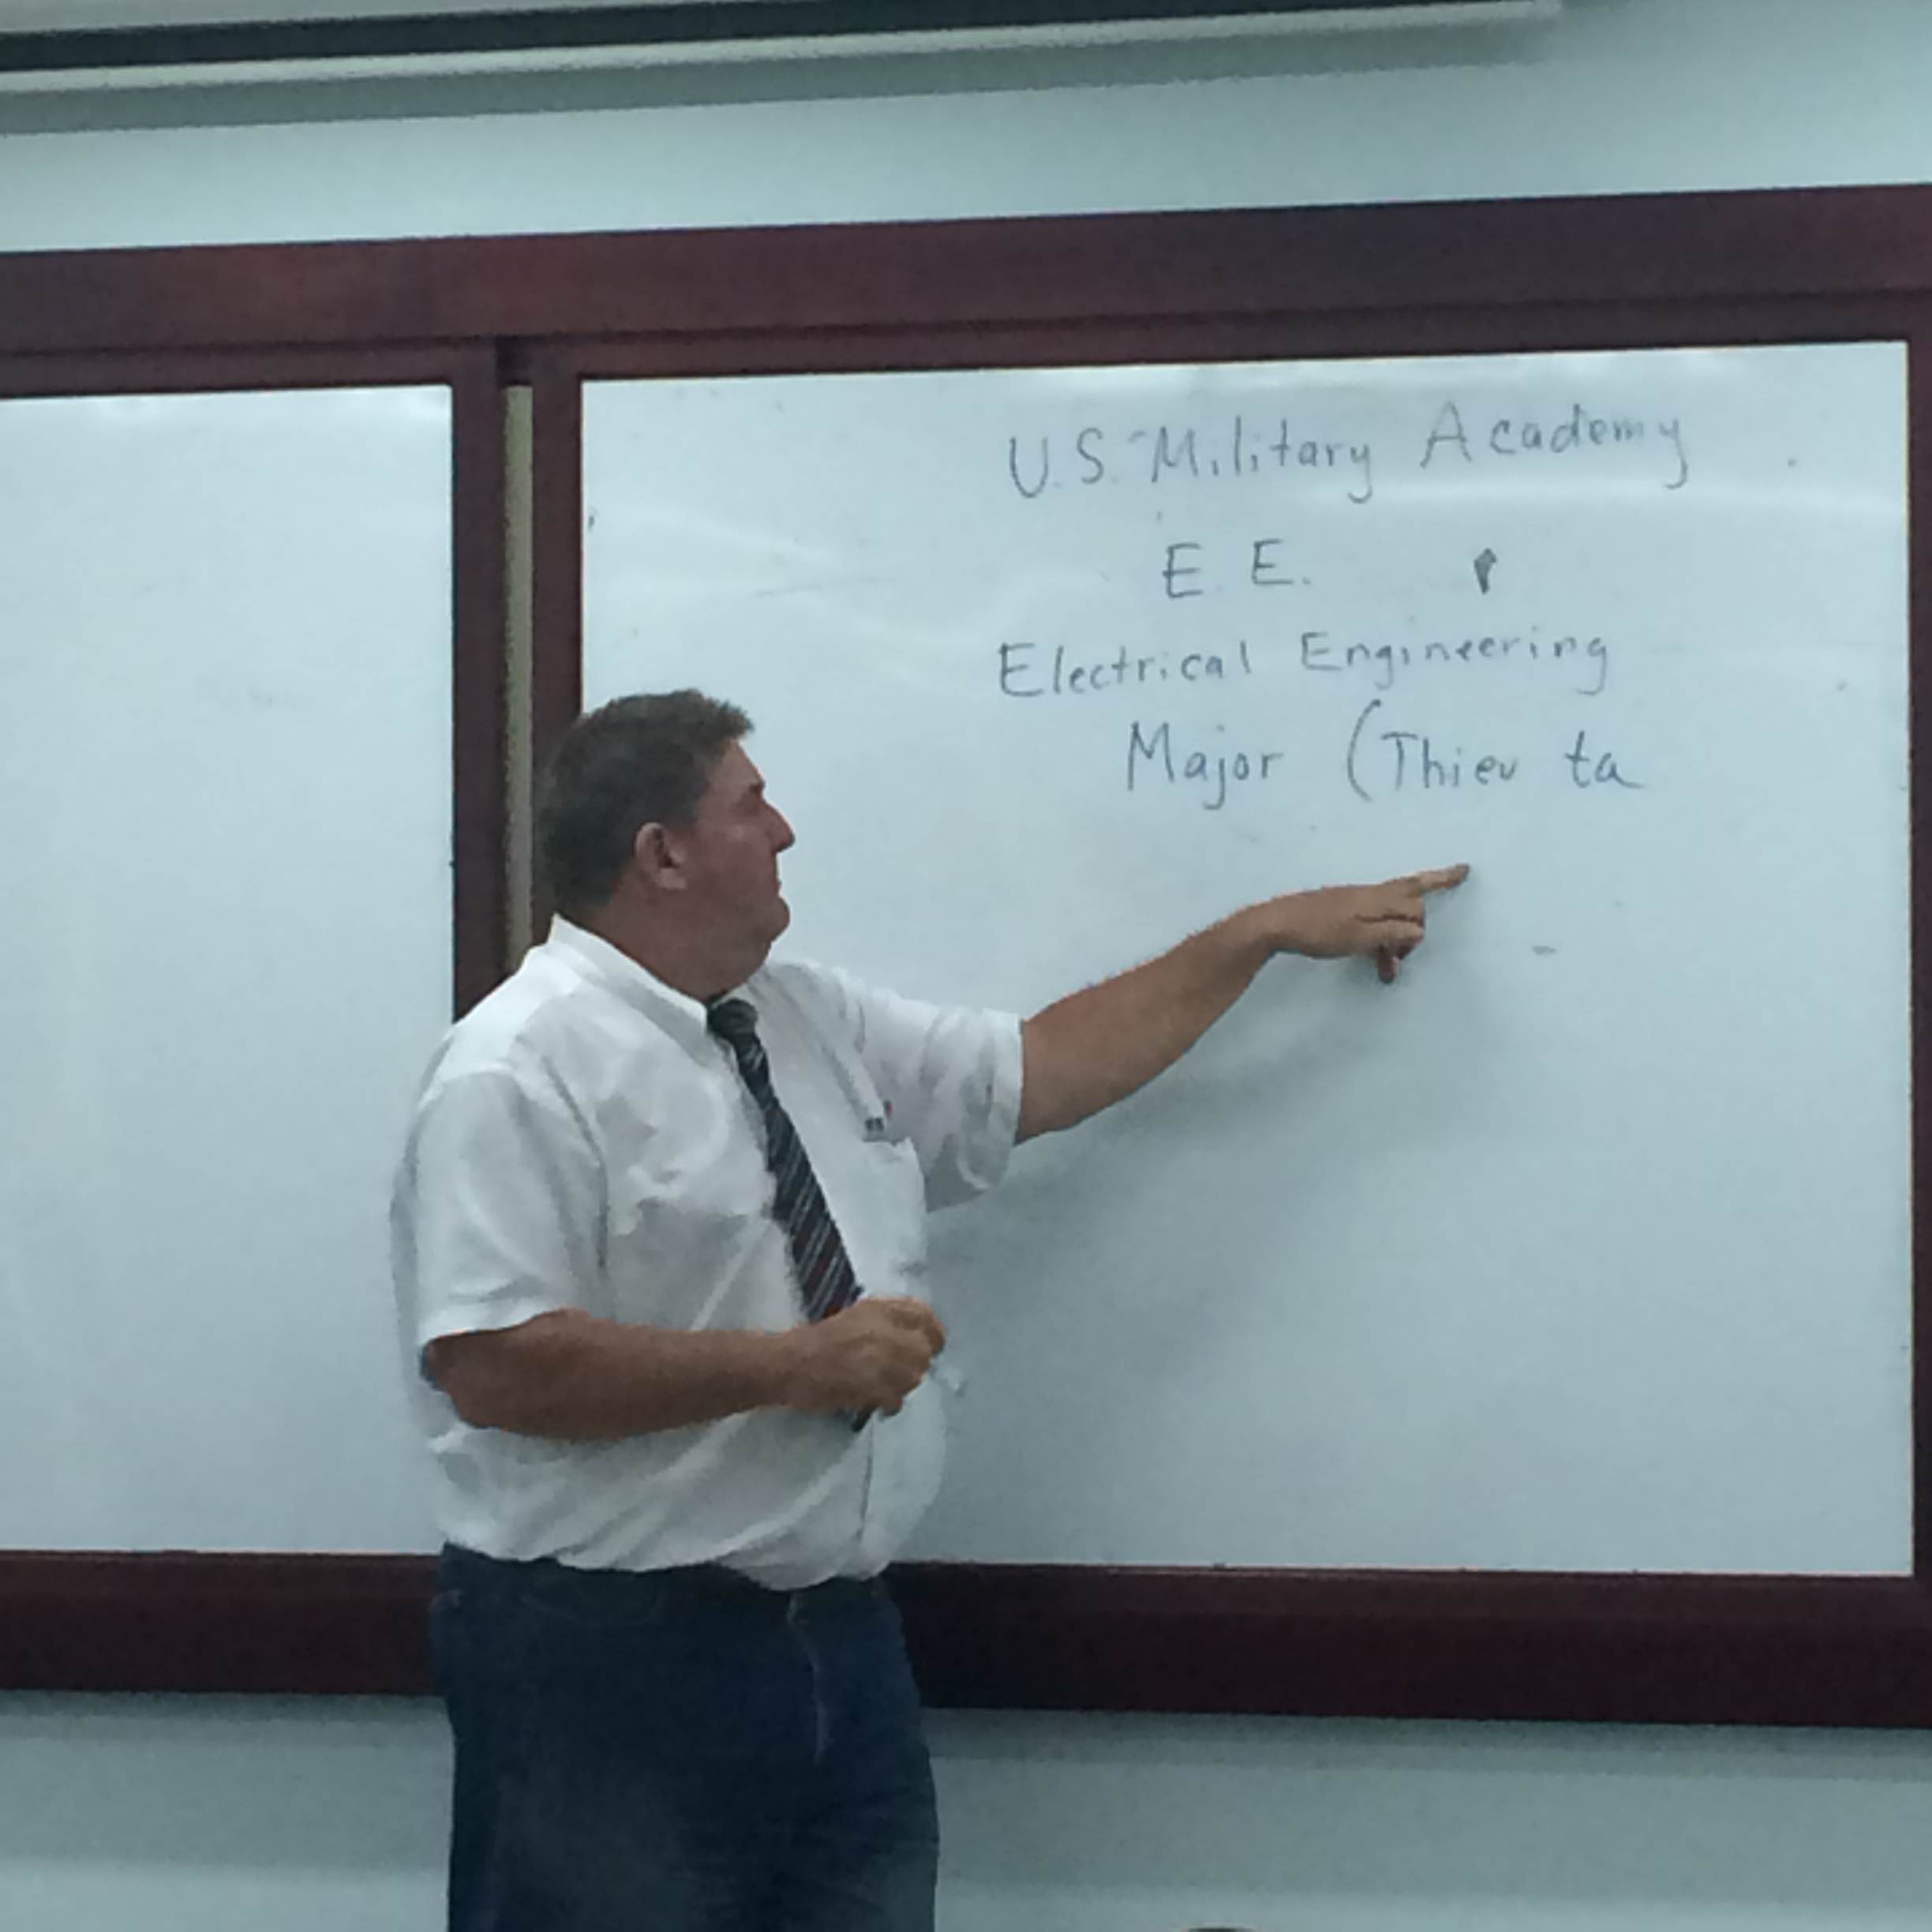 U.S. Military Academy
E.E.
Electrical Engineering
Major (Thieu ta